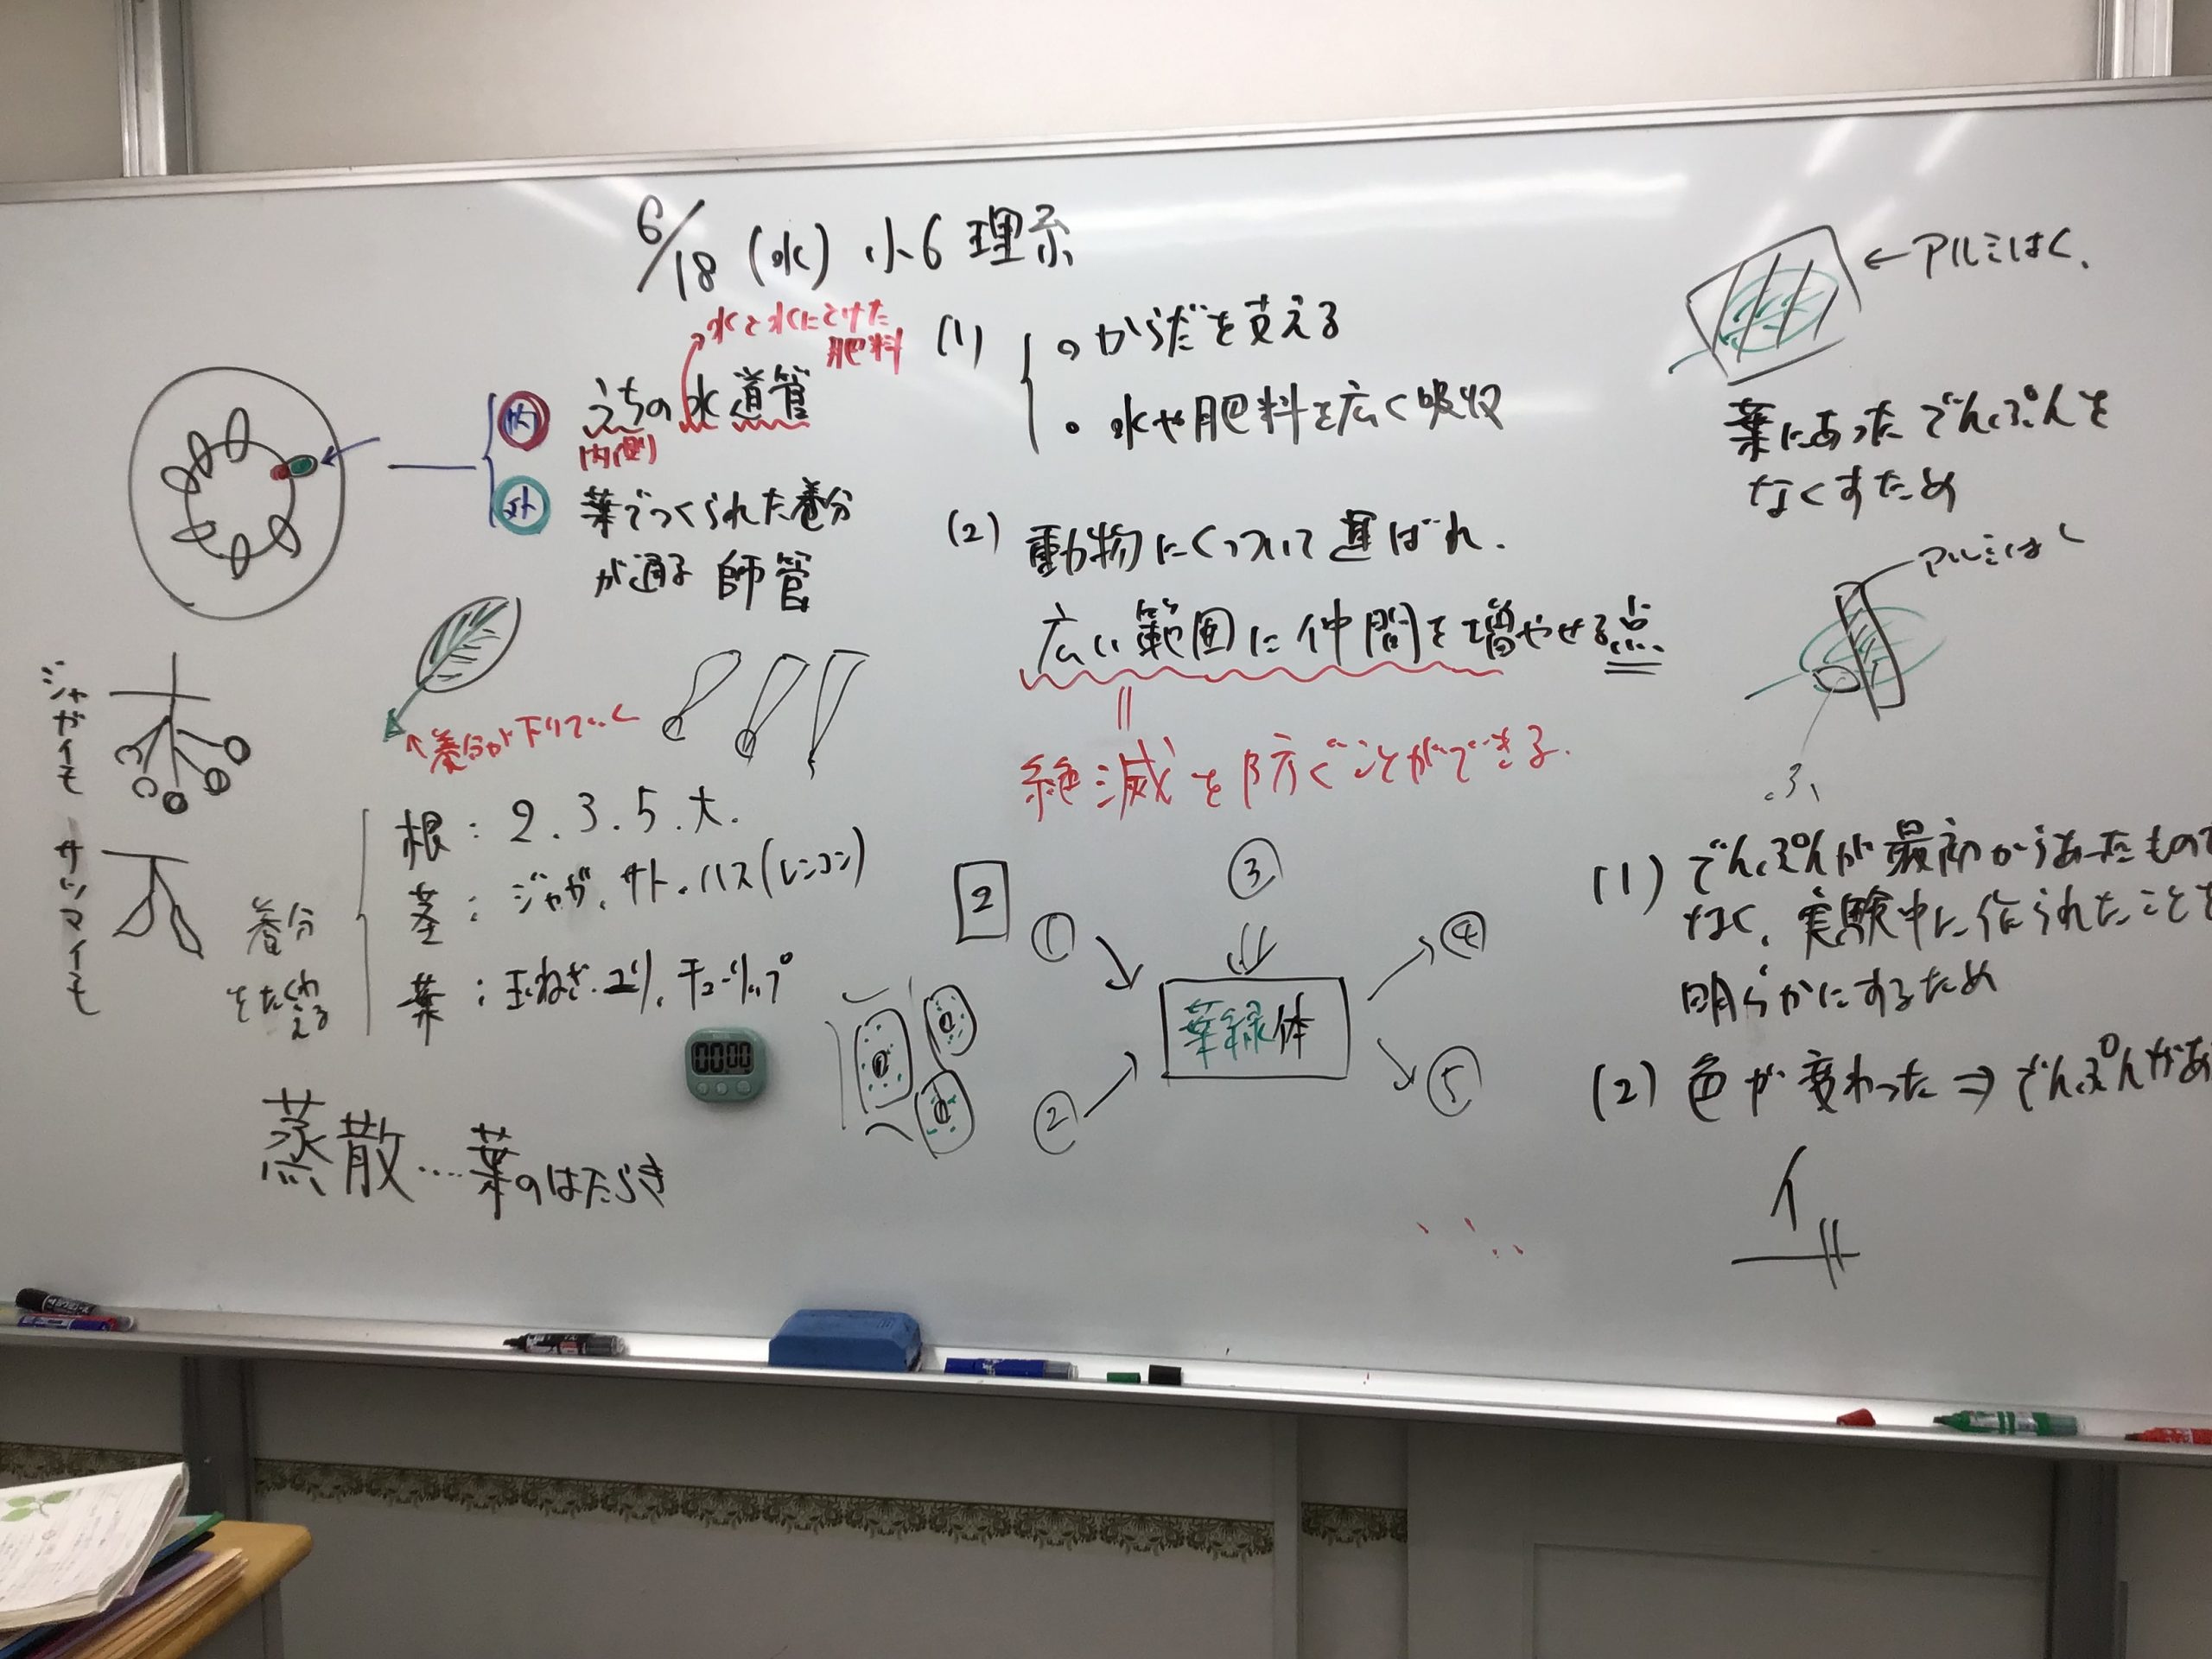 6/18 (水) 小6 理系
水と水にとけた
肥料
内
うちの水道管
内側
外
葉でつくられた養分
が通る 師管
↖養分が下りていく
ジャガイモ
サツマイモ
養分
をたくわ
える
根:2.3.5.大.
茎:ジャガ、サト、ハス(レンコン)
葉:玉ねぎ.ユリ.チューリップ
蒸散....葉のはたらき
00:00
(1)
•からだを支える
•水や肥料を広く吸収
(2) 動物にくっついて運ばれ.
広い範囲に仲間を増やせる点
||
絶滅を防ぐことができる.
2
① ② ③ ④ ⑤
葉緑体
←アルミはく.
葉にあったでんぷんを
なくすため
アルミはく
ふ
(1) でんぷんが最初からあったもので
なく、実験中に作られたことを
明らかにするため
(2) 色が変わった⇒でんぷんがあ
イ